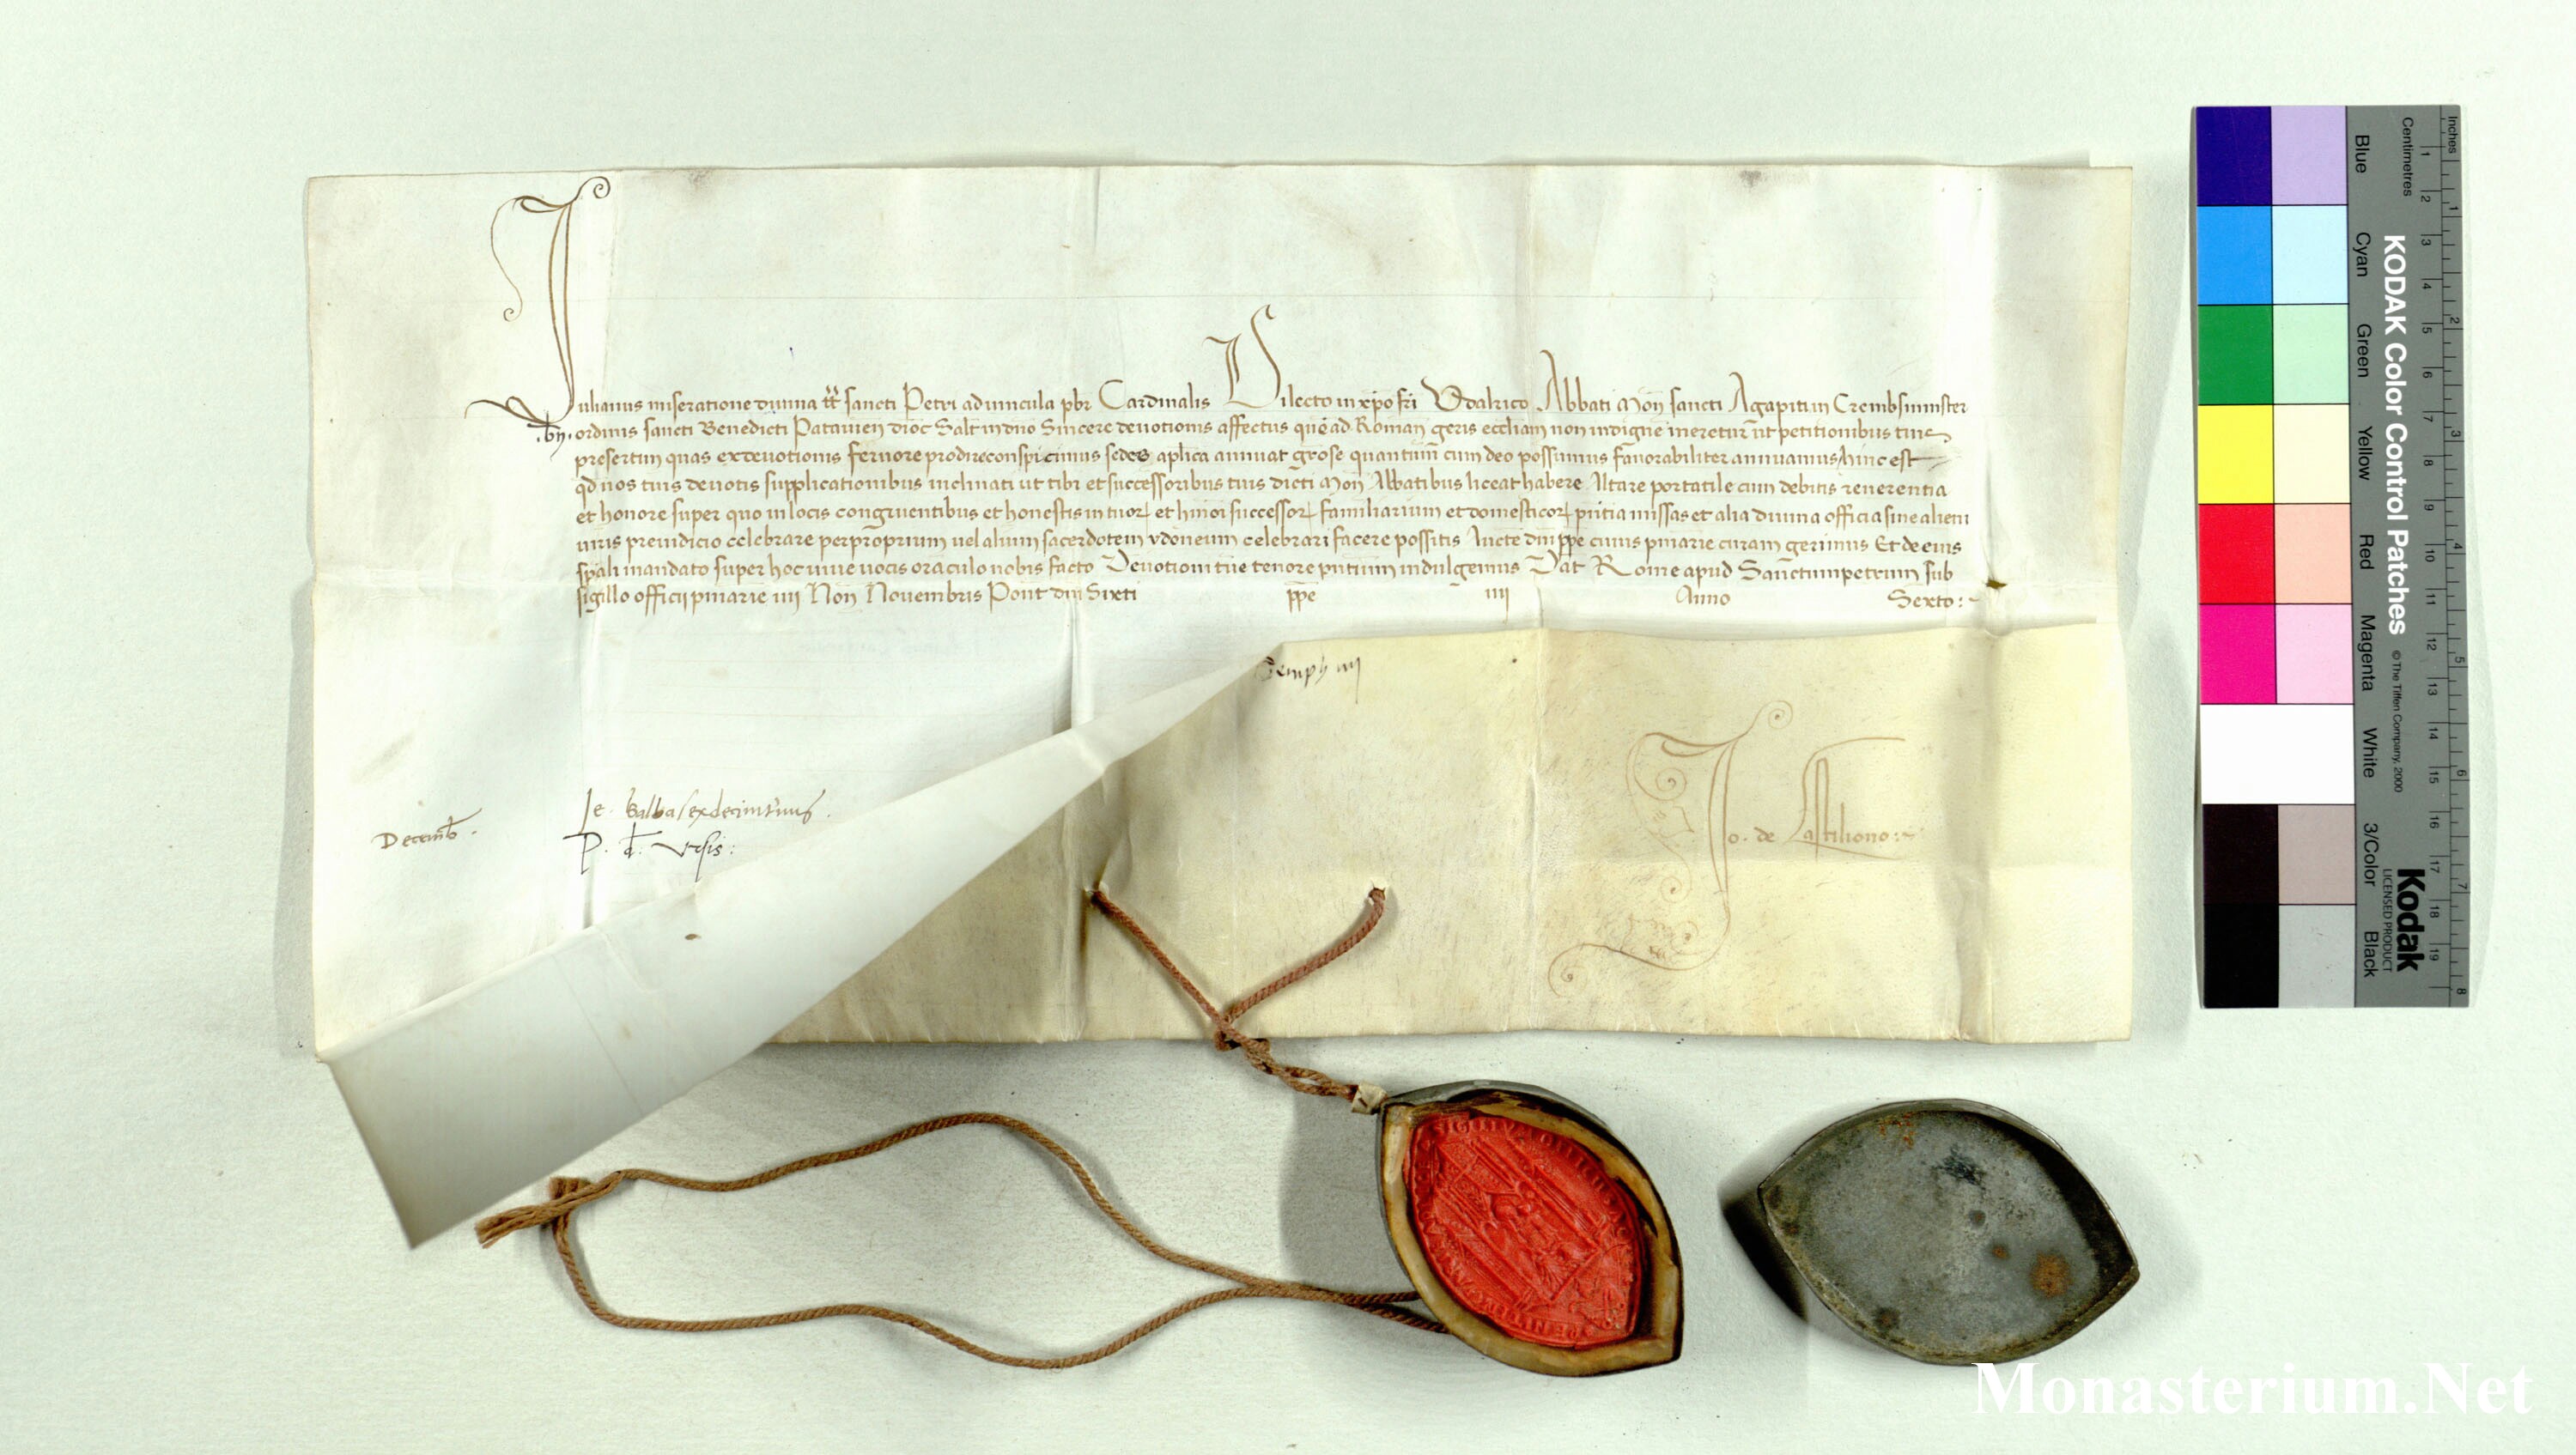 Iulianus miseratione diuina tt̄ sancti Petri aduincula pbr Cardinalis Dilecto in xpo fri Vdalrico Abbati Mon sancti Agapiti in Crembsminster
ordinis sancti Benedicti Patauien dioc Salt in dno Sincere deuotionis affectus quē ad Roman geris eccliam non indigne meretur ut petitionibus tuis
presertim quas ex deuotionis feruore prodire conspicimus sedes aplica annuat grose quantum cum deo possumus fauorabiliter annuamus hinc est
qd nos tuis deuotis supplicationibus inclinati ut tibi et successoribus tuis dicti Mon Abbatibus liceat habere Altare portatile cum debitis reuerentia
et honore super quo in locis congruentibus et honestis in tuor et hmoi successor familiarium et domesticor pñtia missas et alia diuina officia sine alieni
iuris preiudicio celebrare per proprium uel alium sacerdotem ydoneum celebrari facere possitis Aucte dni ppe cuius pniarie curam gerimus Et de eius
spali mandato super hoc uiue uocis oraculo nobis facto Deuotioni tue tenore pntium indulgemus Dat Rome apud Sanctumpetrum sub
sigillo officij pniarie iiij Non Nouembris Pont dni Sixti ppe iiij Anno Sexto:
Jo. de Castiliono:
Decemb.
Je. Balba
P. d. Vrsis:
Blue
Cyan
Green
Yellow
Red
Magenta
White
3/Color
Black
Inches
Centimetres
1 2 3 4 5 6 7 8 9 10 11 12 13 14 15 16 17 18 19
1 2 3 4 5 6 7 8
KODAK Color Control Patches
© The Tiffen Company, 2000
Kodak
LICENSED PRODUCT
Monasterium.Net